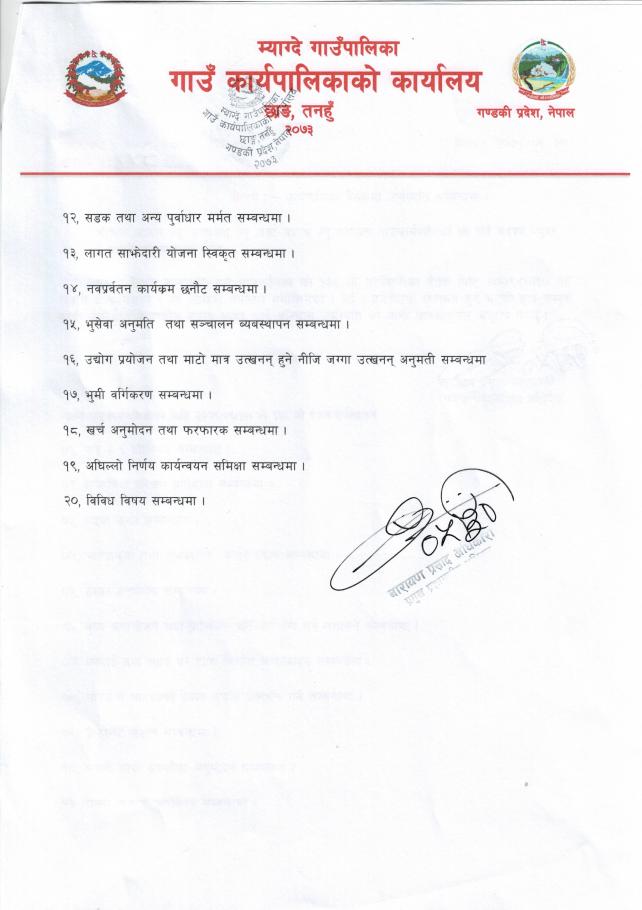 म्याग्दे गाउँपालिका
गाउँ कार्यपालिकाको कार्यालय
छाङ, तनहुँ
२०७३
गण्डकी प्रदेश, नेपाल
म्याग्दे गाउँपालिका
गाउँ कार्यपालिकाको कार्यालय
छाङ, तनहुँ
गण्डकी प्रदेश, नेपाल
२०७३
१२, सडक तथा अन्य पुर्वाधार मर्मत सम्बन्धमा ।
१३, लागत साझेदारी योजना स्विकृत सम्बन्धमा ।
१४, नवप्रर्वतन कार्यकम छनौट सम्बन्धमा ।
१५, भुसेवा अनुमति तथा सञ्चालन ब्यबस्थापन सम्बन्धमा ।
१६, उद्योग प्रयोजन तथा माटो मात्र उत्खनन् हुने नीजि जग्गा उत्खनन् अनुमती सम्बन्धमा
१७, भुमी वर्गिकरण सम्बन्धमा ।
१८, खर्च अनुमोदन तथा फरफारक सम्बन्धमा ।
१९, अघिल्लो निर्णय कार्यन्वयन समिक्षा सम्बन्धमा ।
२०, विविध विषय सम्बन्धमा ।
नारायण प्रसाद अधिकारी
प्रमुख